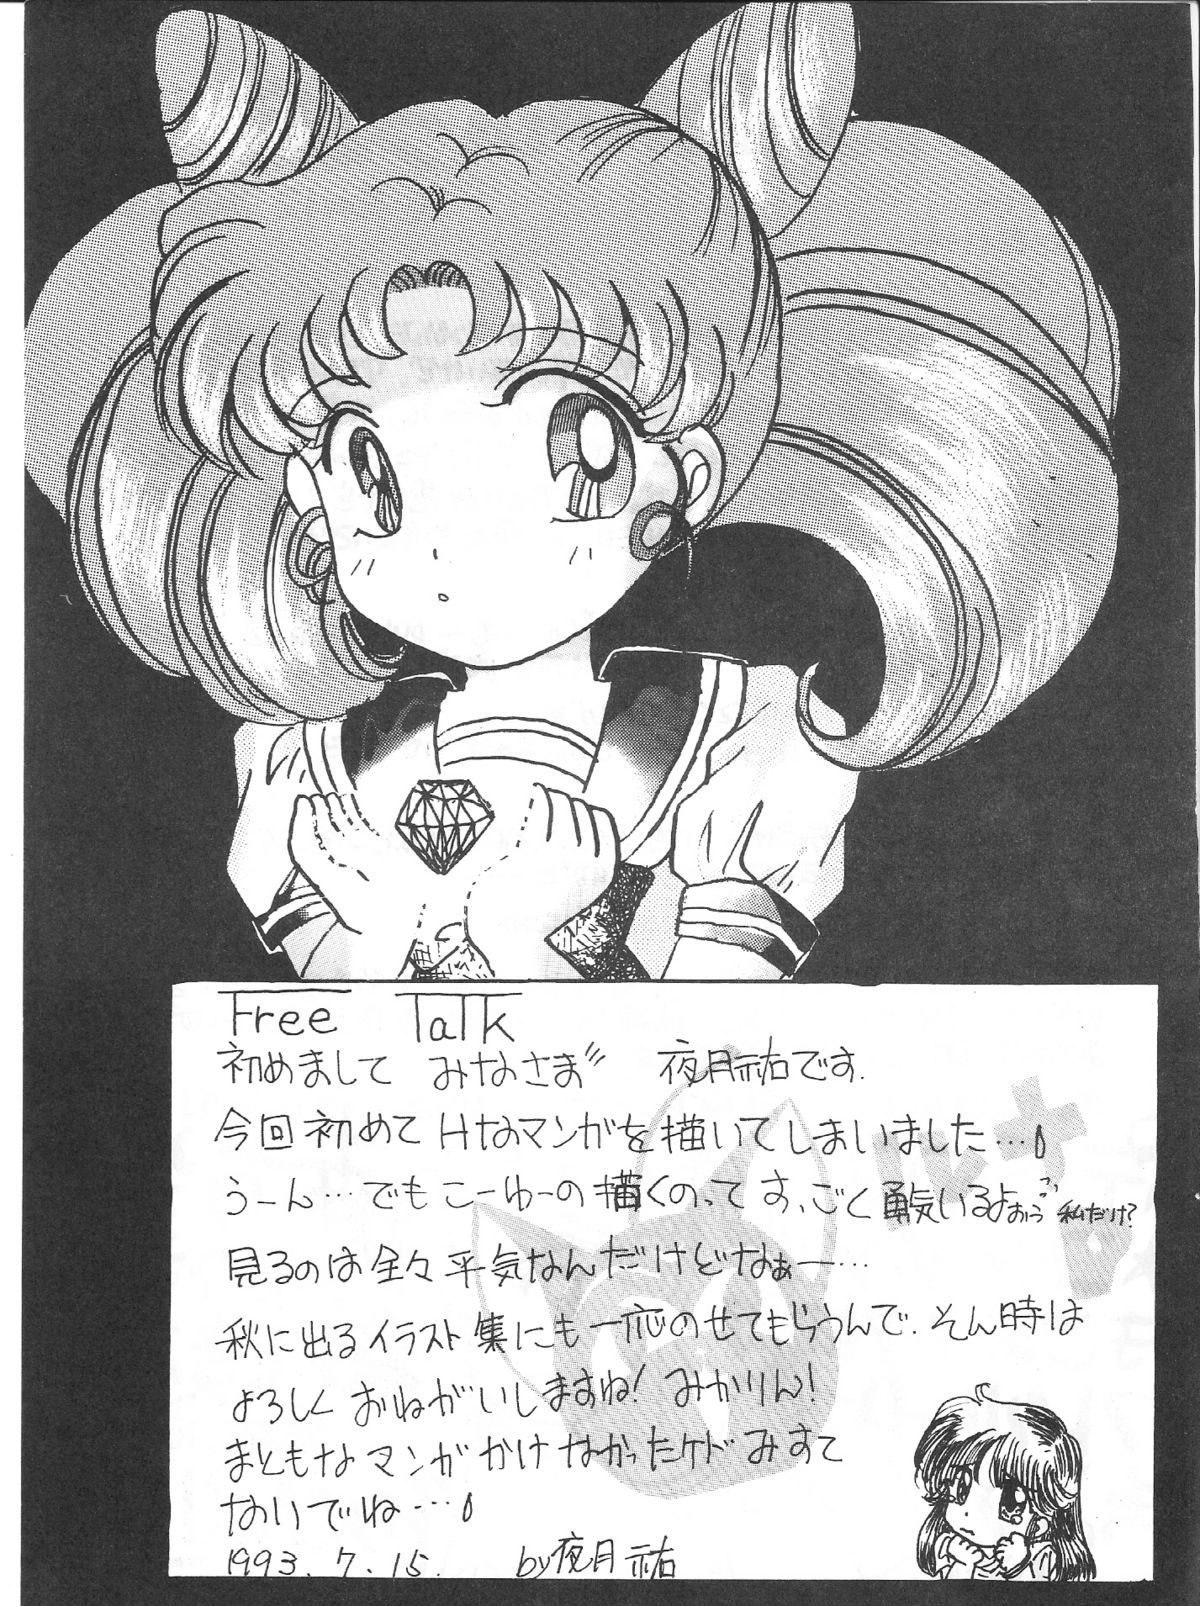 Free Talk
初めまして みなさま〃 夜月祐です.
今回初めてHなマンガを描いてしまいました…
うーん…でもこーゆーの描くのってすっごく勇気いるよおぅ 私だけ?
見るのは全々平気なんだけどなぁー…
秋に出るイラスト集にも一応のせてもらうんで、そん時は
よろしくおねがいしますね! みかりん!
まともなマンガかけなかったケドみすて
ないでね…
1993.7.15. by夜月祐